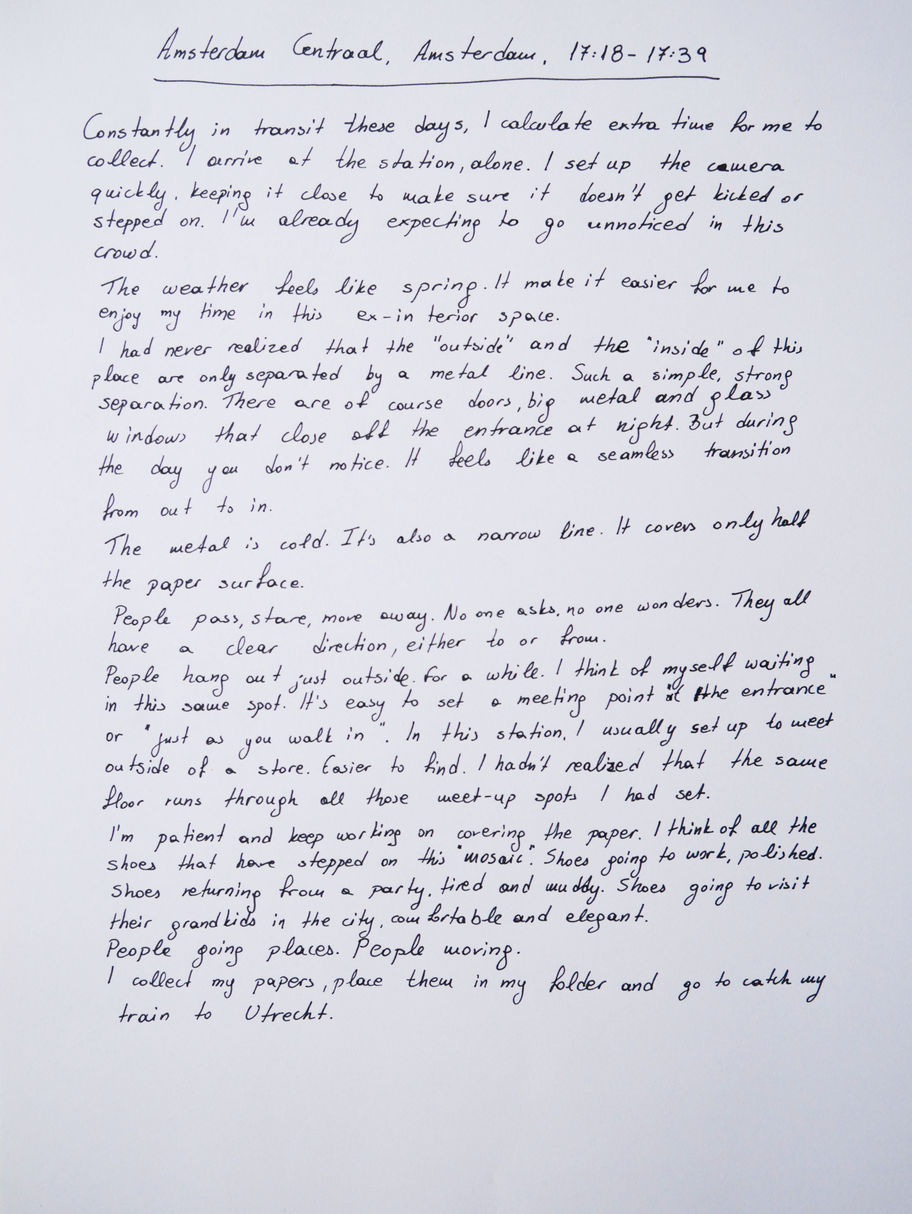 Amsterdam Centraal, Amsterdam, 17:18-17:39
Constantly in transit these days, I calculate extra time for me to
collect. I arrive at the station, alone. I set up the camera
quickly, keeping it close to make sure it doesn't get kicked or
stepped on. I'm already expecting to go unnoticed in this
crowd.
The weather feels like spring. It make it easier for me to
enjoy my time in this ex-in terior space.
I had never realized that the "outside" and the "inside" of this
place are only separated by a metal line. Such a simple, strong
separation. There are of course doors, big metal and glass
windows that close off the entrance at night. But during
the day you don't notice. It feels like a seamless transition
from out to in.
The metal is cold. It's also a narrow line. It covers only half
the paper surface.
People pass, stare, move away. No one asks, no one wonders. They all
have a clear direction, either to or from.
People hang out just outside. For a while. I think of myself waiting
in this same spot. It's easy to set a meeting point "at the entrance"
or "just as you walk in". In this station, I usually set up to meet
outside of a store. Easier to find. I hadn't realized that the same
floor runs through all those meet-up spots I had set.
I'm patient and keep working on covering the paper. I think of all the
shoes that have stepped on this "mosaic". Shoes going to work, polished.
Shoes returning from a party, tired and muddy. Shoes going to visit
their grandkids in the city, comfortable and elegant.
People going places. People moving.
I collect my papers, place them in my folder and go to catch my
train to Utrecht.